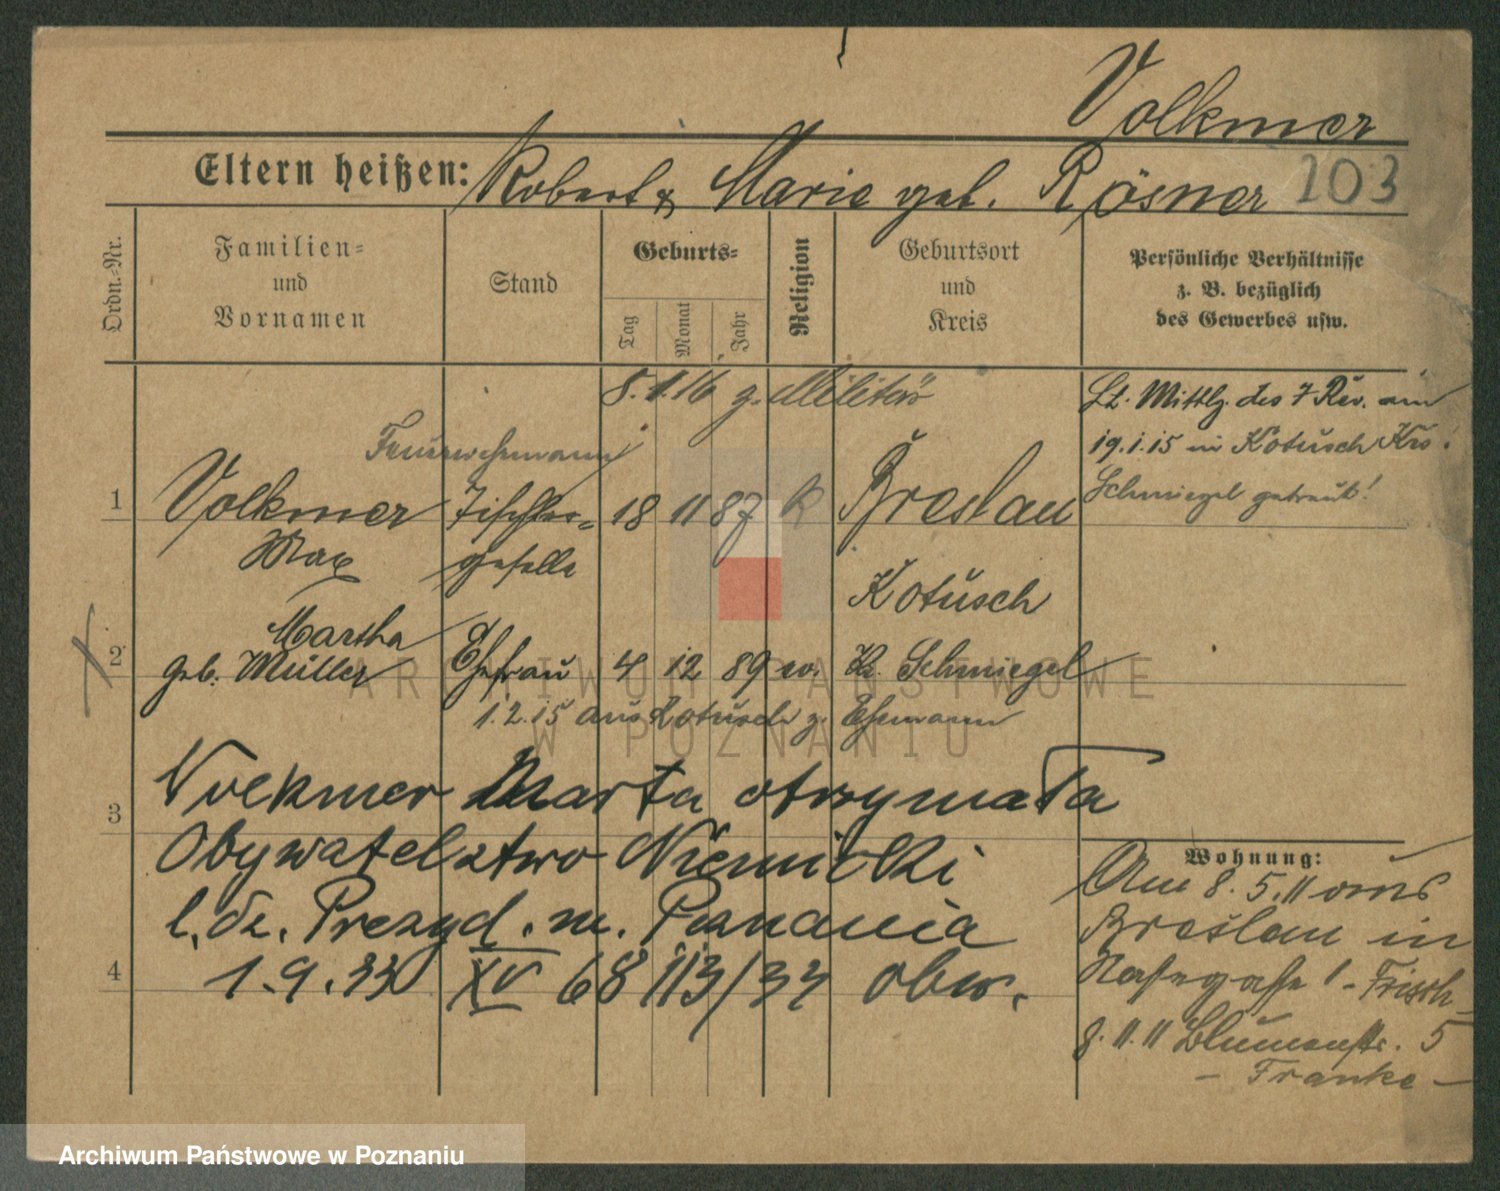 Volkmer
Eltern heißen: Robert & Marie geb. Rösner 203
Ordn.-Nr.
Familien- und Vornamen
Stand
Geburts-
Tag Monat Jahr
Religion
Geburtsort und Kreis
Persönliche Verhältnisse
z. B. bezüglich
des Gewerbes usw.
8.1.16 z. Militär
Lt. Mittlg. des 7 Rev. am
19.1.15 in Kotusch Krs.
Schmiegel getraut!
Feuerwehrmann
1 Volkmer Tischler- 18 11 87 k Breslau
Max geselle
Kotusch
Martha
2 geb. Müller Ehefrau 4 12 89 ev. Kr. Schmiegel
1.2.15 aus Kotusch z. Ehemann
3 Volkmer Marta otrzymała
Obywatelstwo Niemiecki
l. dz. Prezyd. m. Poznania
4 1.9.33 XV 68 113/33 obw.
Wohnung:
Am 8.5.11 aus
Breslau in
1 - Frisch -
8.11.11 Blumenstr. 5
- Franke -
ARCHIWUM PAŃSTWOWE
W POZNANIU
Archiwum Państwowe w Poznaniu